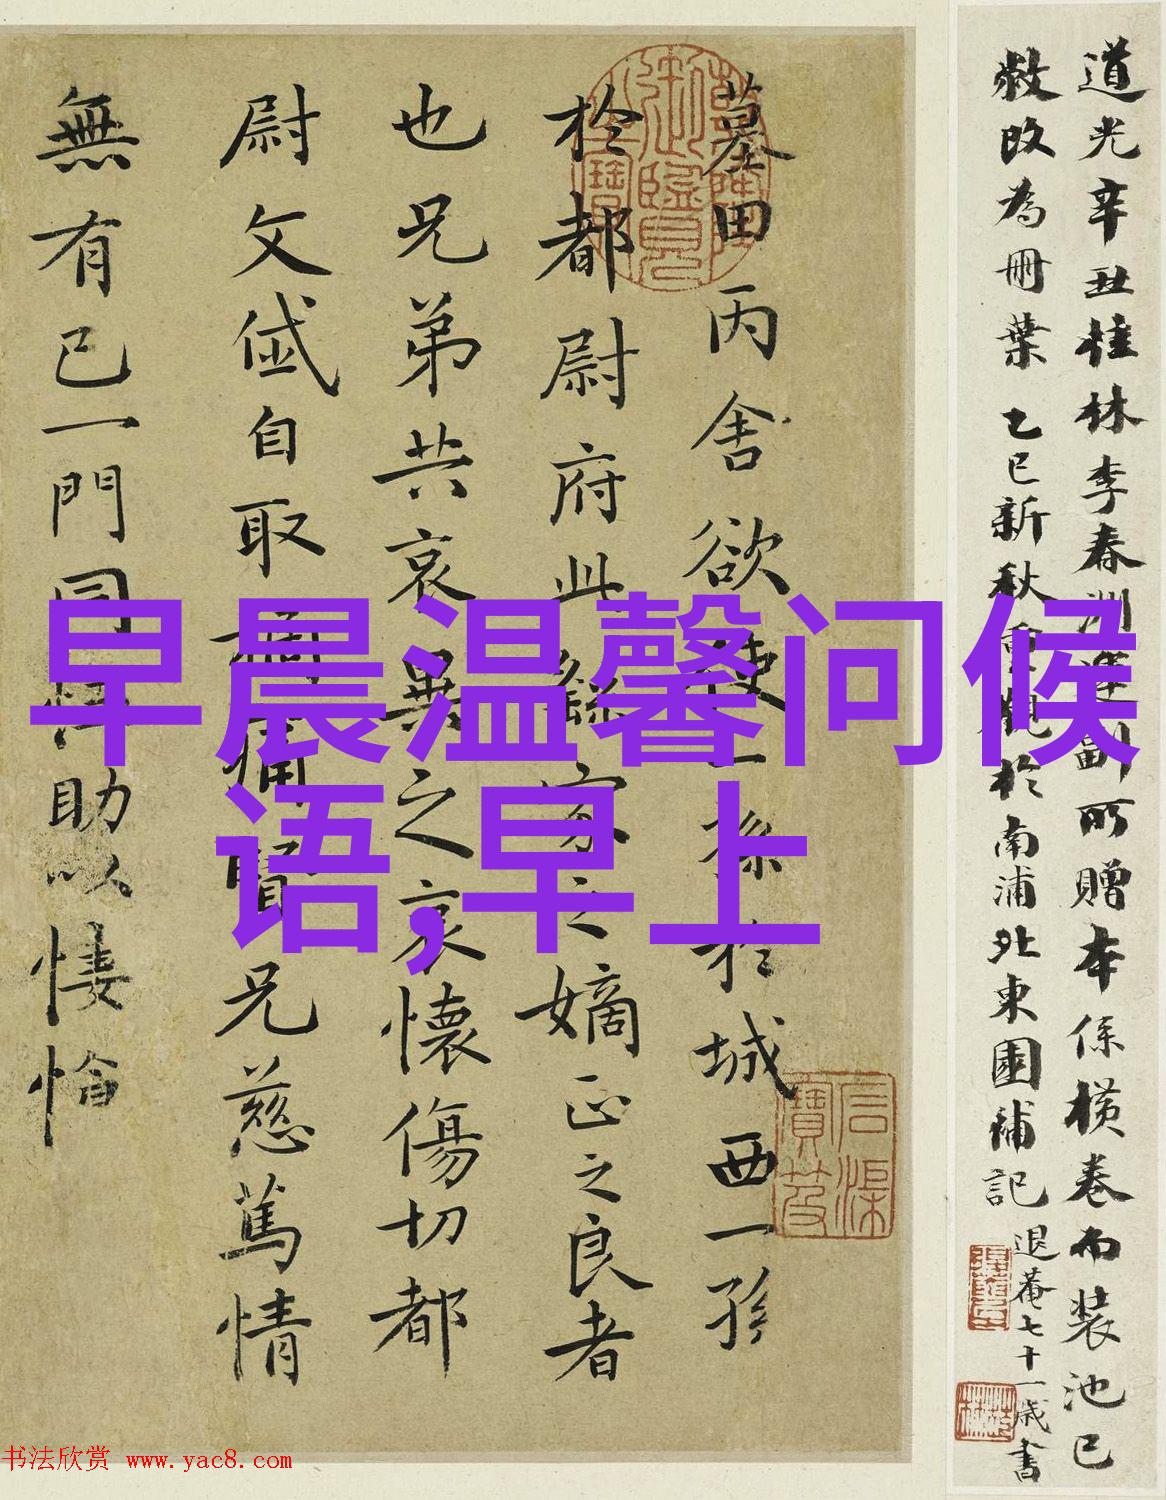 早晨温馨问候
语,早上
道光辛丑桂林李春洲運副所贈本係橫卷而裝池已
敝改為冊葉 乙巳新秋重觀於南浦北東園補記
退菴七十一歲書
墓田丙舍欲使一孫於城西一孫
於都尉府此繇家之嫡正之良者
也兄弟共哀異之哀懷傷切都
尉文岱自取 痛賢兄慈篤情
無有已一門同恤助以悽愴
御覽
寶
书法欣赏 www.yac8.com